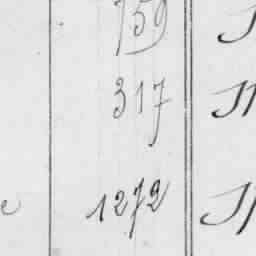 759
317
1272